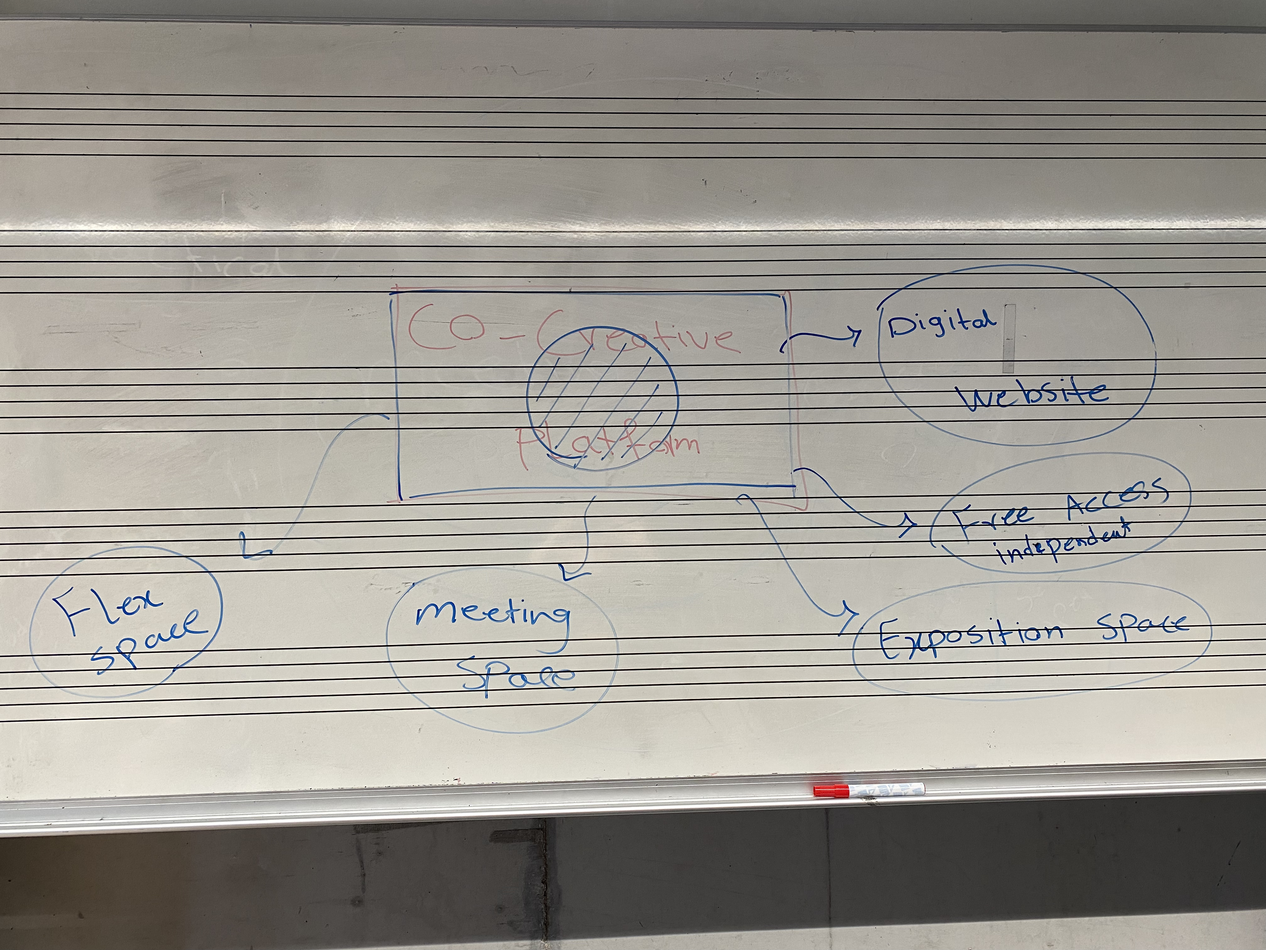 Co-Creative
Platform
Digital
Website
Free Access
independent
Exposition Space
Meeting
Space
Flex
space